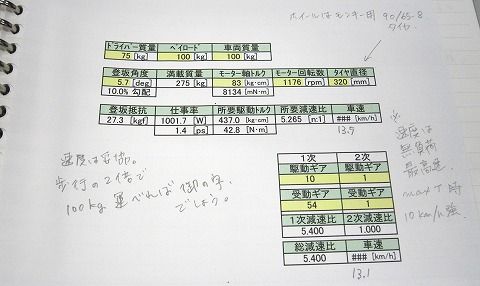 ホイールはモンキー用 90/65-8
タイヤ
ドライバー質量 ペイロード 車両質量
75 [kg] 100 [kg] 100 [kg]
登坂角度 満載質量 モーター軸トルク モーター回転数 タイヤ直径
5.7 [deg] 275 [kg] 83 [kg·cm] 1176 [rpm] 320 [mm]
10.0% 勾配 8134 [mN·m]
登坂抵抗 仕事率 所要駆動トルク 所要減速比 車速
27.3 [kgf] 1001.7 [W] 437.0 [kg·cm] 5.265 [n:1] ### [km/h]
1.4 [ps] 42.8 [N·m] 13.5
速度は妥協。
歩行の2倍で
100kg 運べれば御の字
でしょう。
※
速度は
無負荷
最高速
max T 時
10km/h強
1次 2次
駆動ギア 駆動ギア
10 1
受動ギア 受動ギア
54 1
1次減速比 2次減速比
5.400 1.000
総減速比 車速
5.400 ### [km/h]
13.1